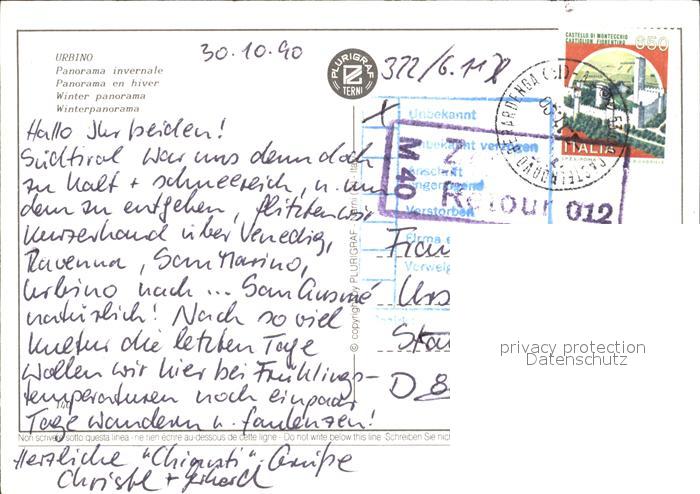 URBINO
Panorama invernale
Panorama en hiver
Winter panorama
Winterpanorama
30.10.90
PLURIGRAF
TERNI
CASTELLO DI MONTECCHIO
CASTIGLION FIORENTINO
650
ITALIA
Unbekannt
Unbekannt verzogen
Anschrift
Verstorben
Firma
M 40
Retour 012
Hallo Ihr beiden!
Südtirol war uns denn doch
zu kalt + schneereich, u. um
dem zu entgehen, flitzten wir
kurzerhand über Venedig,
Ravenna, San Marino,
Urbino nach ... San Gusmé
natürlich! Nach so viel
Kultur die letzten Tage
wollen wir hier bei Frühlings-
temperaturen noch ein paar
Tage wandern u. faulenzen!
Herzliche "Chianti"-Grüße
Christl + Gerhard
© copyright by PLURIGRAF - Terni
Frau
Urs
D 8
privacy protection
Datenschutz
Non scrivere sotto questa linea - ne rien écrire au-dessous de cette ligne - Do not write below this line - Schreiben Sie nicht